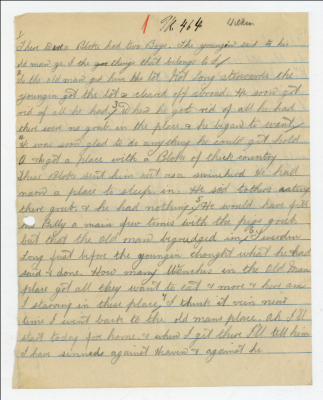 1 Pk 464
There was a Bloke had two Boys. The youngin said to his
old man gis I the goo things that belongs to I
So the old man give him the lot. Not long afterwards the
youngin got the lot & cleared off abroad. He soon got
rid of all he had, 3 When he got rid of all he had
there were no grub in the place & he began to want,
I was som glad to do anything he could get hold
& a place with a Bloke of thick country
This Bloke sent him out as a swineherd He had
narn a place to sleep in. He sed tothers eating
there grub. & he had nothing, He would have fill
Belly a main few times with the pegs grub
but that the old man begrudged im,
Long fust before the youngin thought what he had
said & done. How many Wenches in the Old Mans
place got all they want to eat & more & here am
I starving in these place, I think it vein near
time I went back to the old mans place. Oh I'll
start today for home. & when I git there I'll tell him
I have sinneds against Heaven & against he